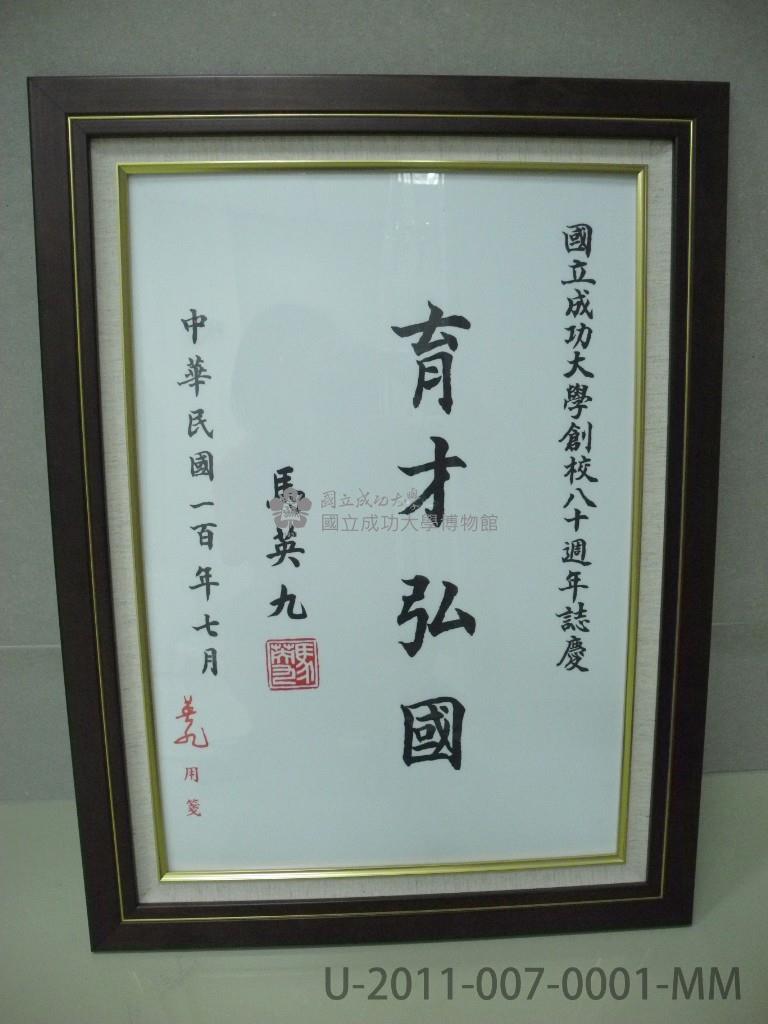 國立成功大學創校八十週年誌慶
育才弘國
馬英九
馬英九
中華民國一百年七月
英九
用箋
國立成功大學
國立成功大學博物館
U-2011-007-0001-MM